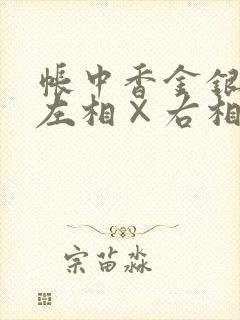 帐中香金银
左相×右相
宗苗淼